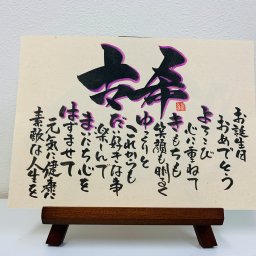 古希
お誕生日
おめでとう
よろこび
心に重ねて
きもちも
笑顔も明るく
ゆるりと
これからも
だい好きな事
楽しんで
心を
はずませて
元気に健康
素敵な人生を